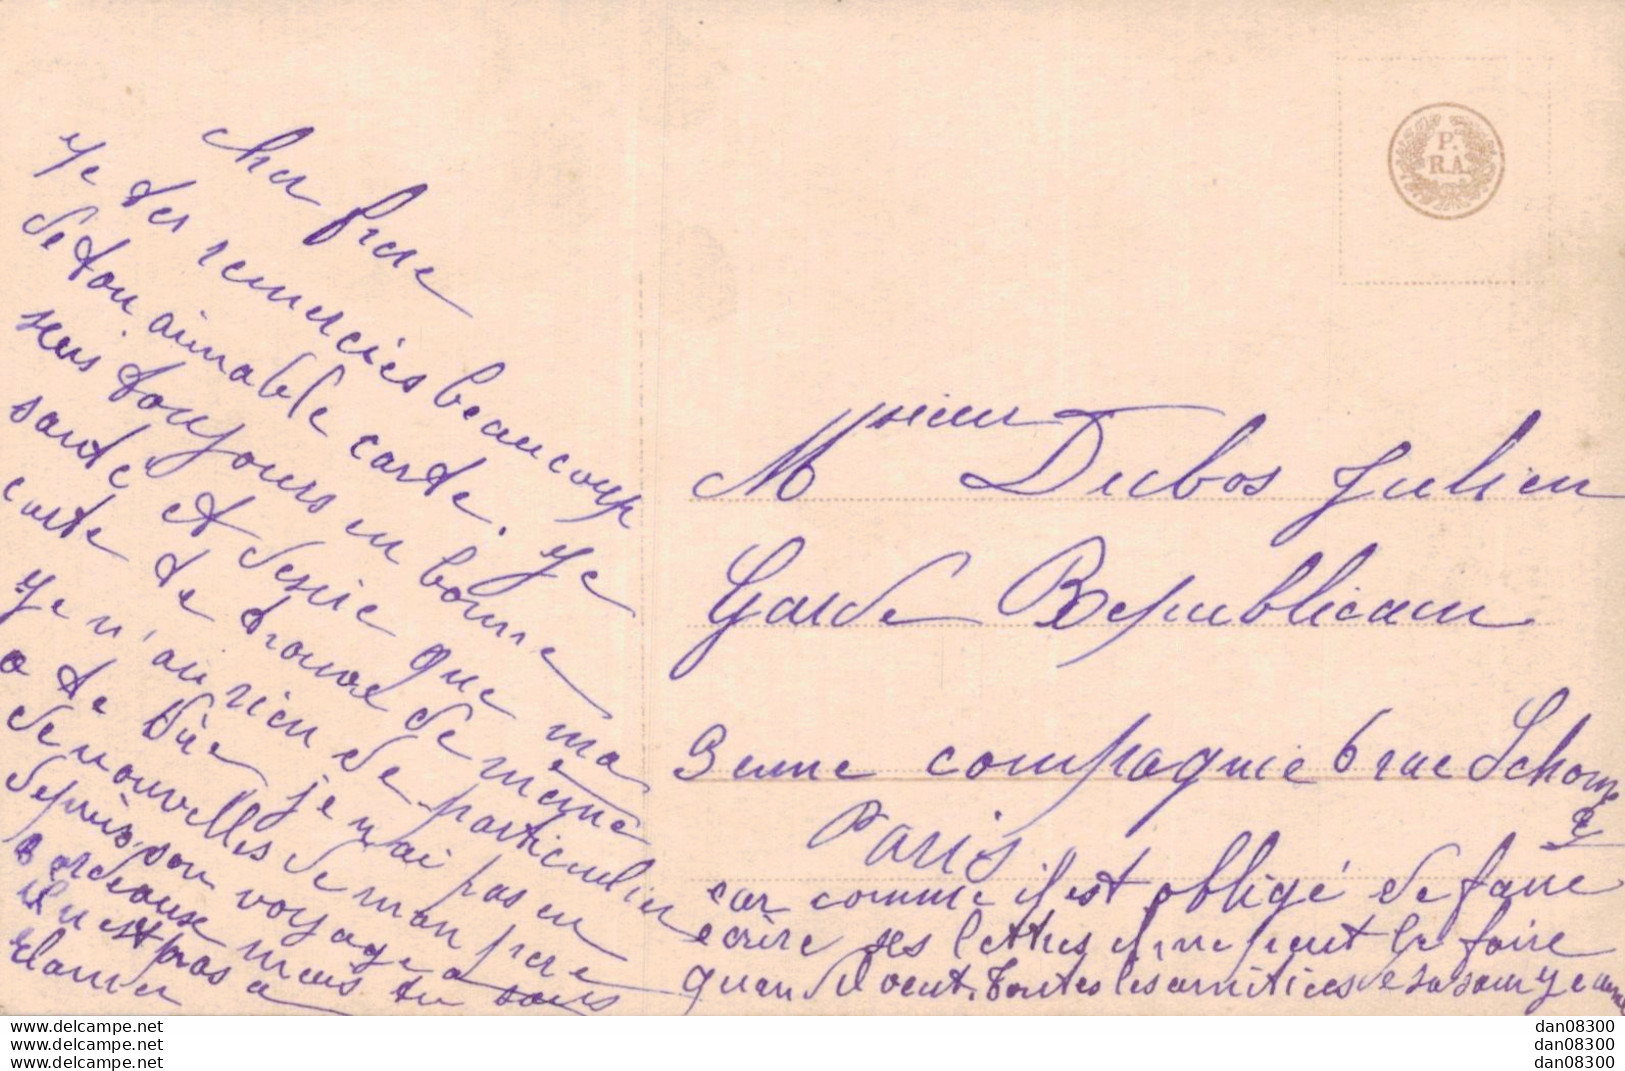 Cher frere
Je tes remercies beaucoup
de ton aimable carte. Je
suis toujours en bonne
santé et desire que ma
carte te trouve de même
Je n'ai rien de particulier
a te dire je n'ai pas eu
de nouvelles de mon pere
depuis son voyage a
Bordeause mais tu sais
il n'est pas a
blamer
P.
R.A.
Msieur Dubos Julien
Garde Republicain
3eme compagnie 6 rue Schom
Paris
car comme il est obligé de faire
ecrire ses lettres il ne peut le faire
quan il veut. toutes les amitiees de sa soeur Jeanne
www.delcampe.net
www.delcampe.net
www.delcampe.net
dan08300
dan08300
dan08300